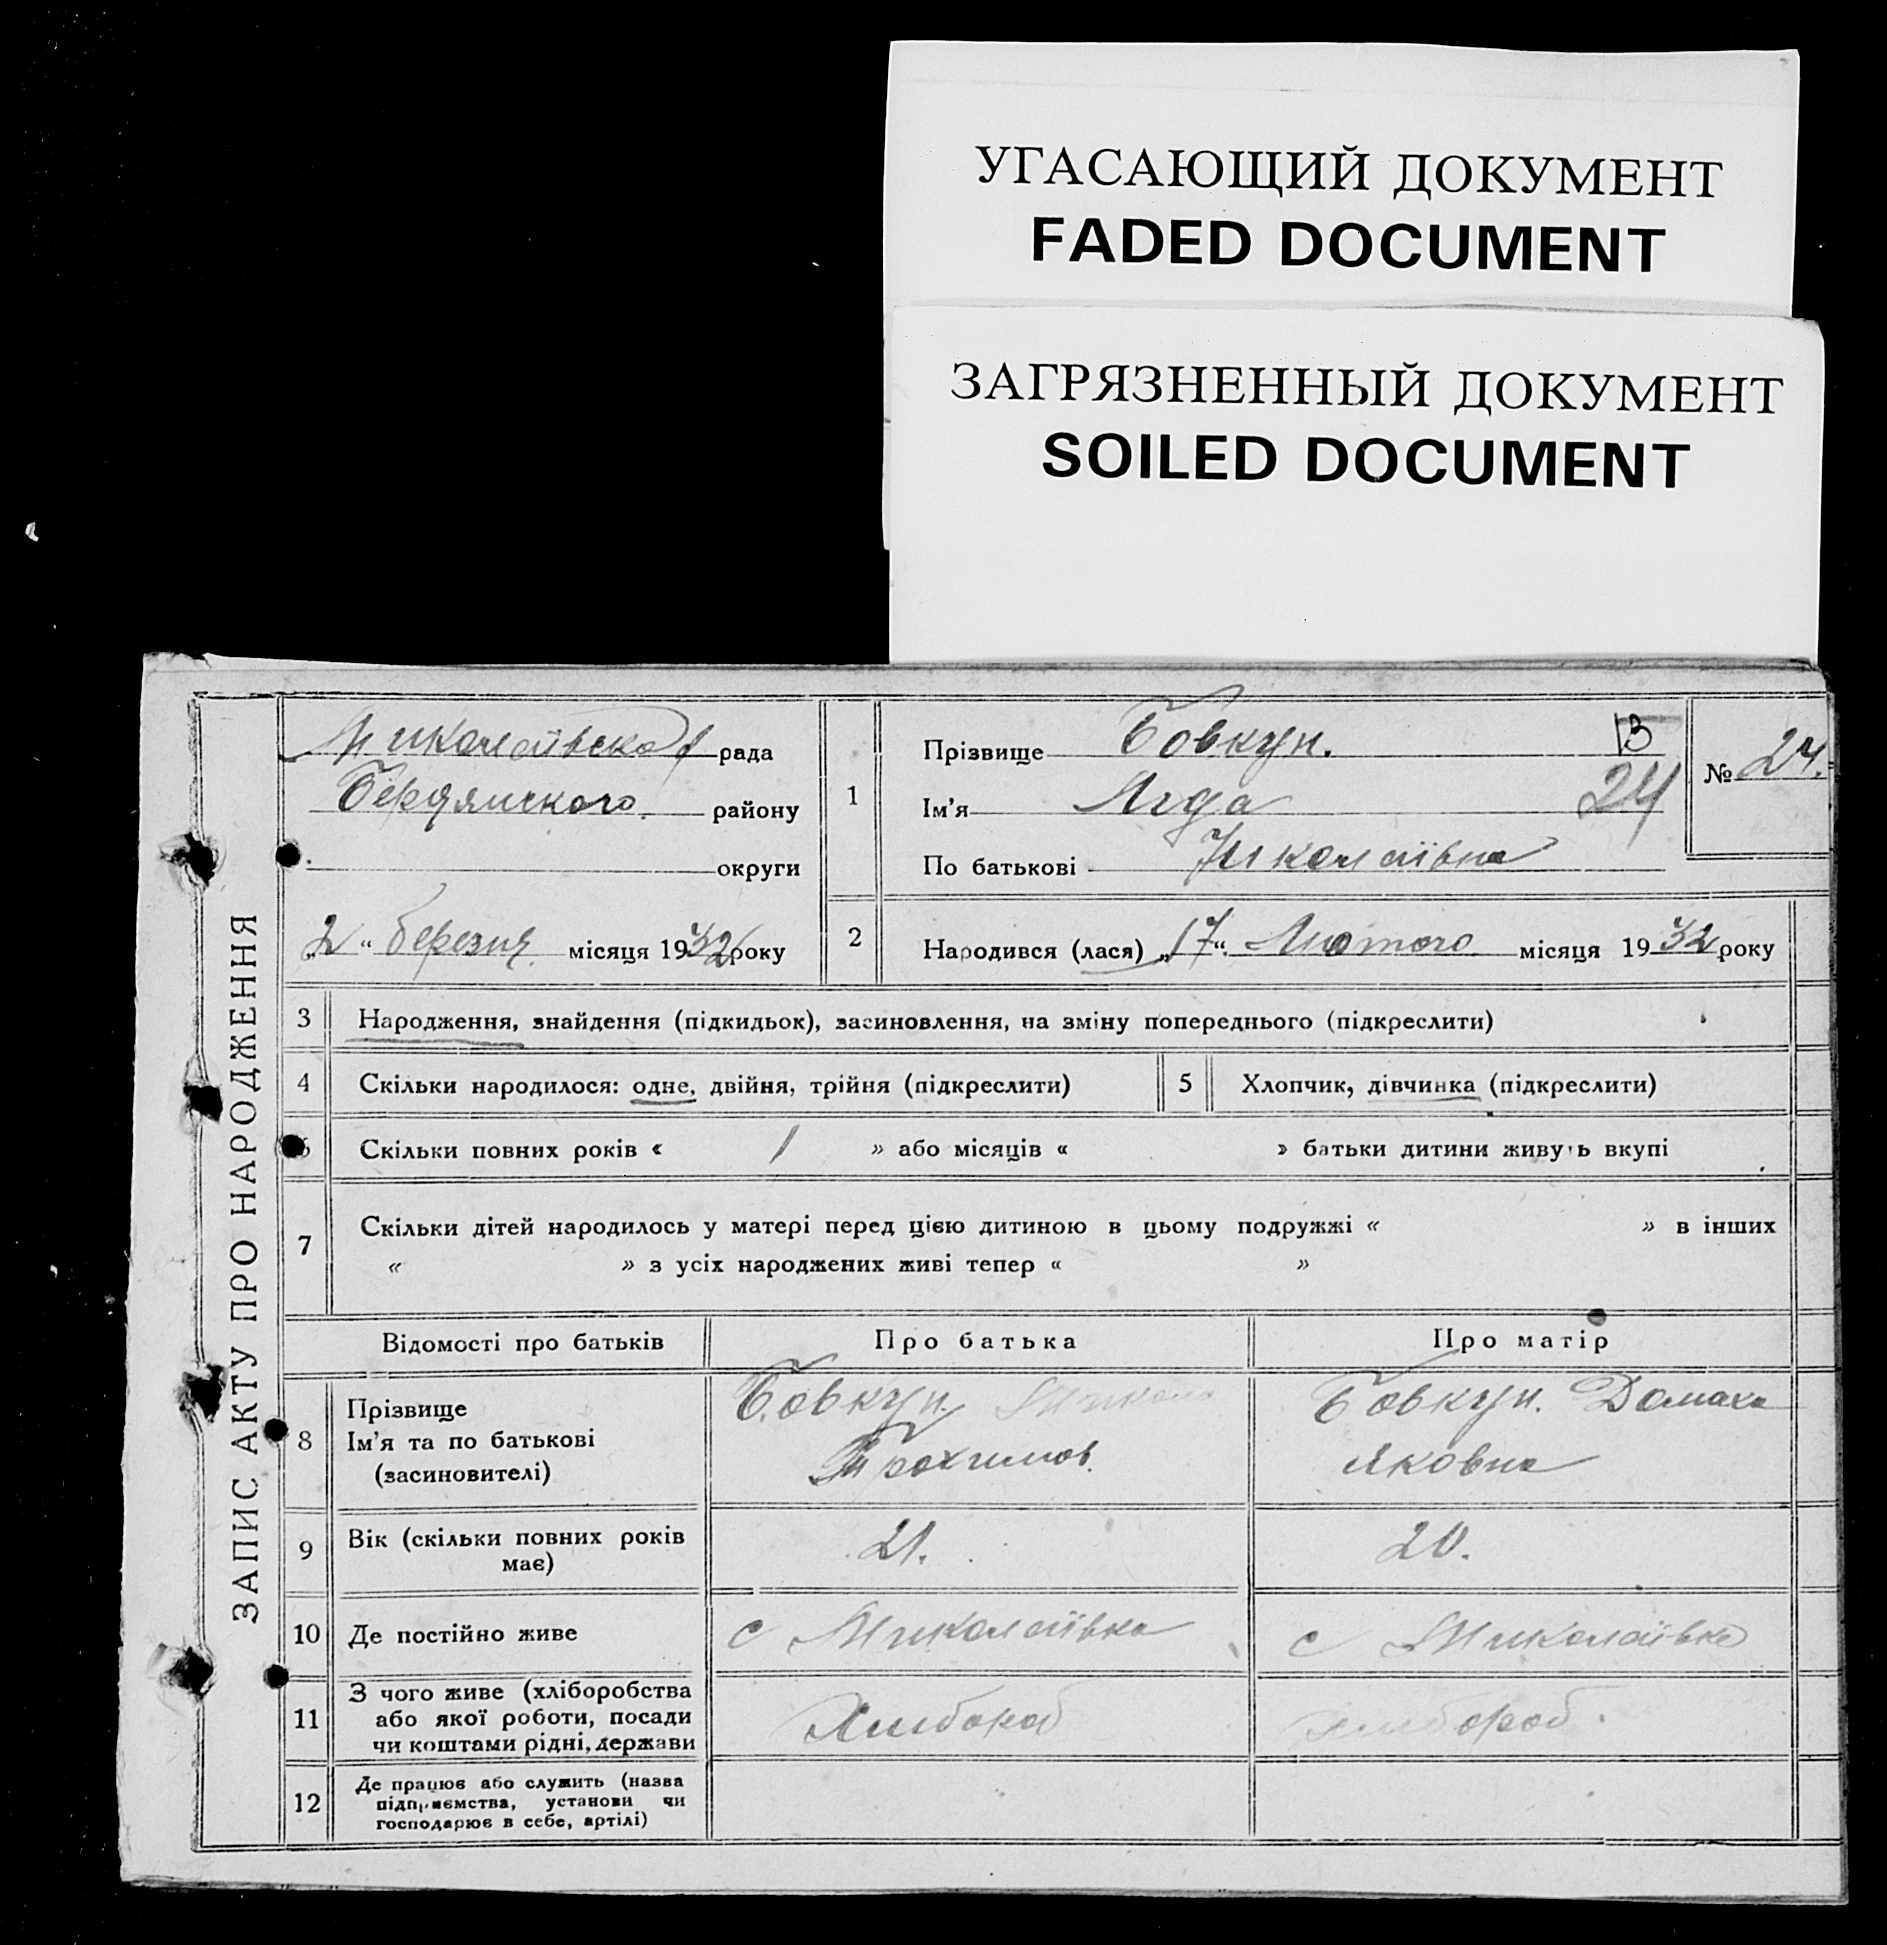 УГАСАЮЩИЙ ДОКУМЕНТ
FADED DOCUMENT
ЗАГРЯЗНЕННЫЙ ДОКУМЕНТ
SOILED DOCUMENT
ЗАПИС АКТУ ПРО НАРОДЖЕННЯ
Миколаївська рада
Бердянського району
округи
„2“ березня місяця 1932 року
1
Прізвище Бовкун.
13
Ім'я Ліда
24
По батькові Николаївна
№ 24.
2
Народився (лася) „17“ Лютого місяця 1932 року
3 Народження, знайдення (підкидьок), засиновлення, на зміну попереднього (підкреслити)
4 Скільки народилося: одне, двійня, трійня (підкреслити)
5 Хлопчик, дівчинка (підкреслити)
6 Скільки повних років « 1 » або місяців « » батьки дитини живуть вкупі
7 Скільки дітей народилось у матері перед цією дитиною в цьому подружжі « » в інших
« » з усіх народжених живі тепер « »
Відомості про батьків Про батька Про матір
8 Прізвище
Ім'я та по батькові
(засиновителі)
Бовкун Микола
Трохимов.
Бовкун. Домаха
Яковна
9 Вік (скільки повних років
має)
21.
20.
10 Де постійно живе с Миколаївка с Миколаївка
11 З чого живе (хліборобства
або якої роботи, посади
чи коштами рідні, держави
Хлибороб
хлибороб.
12 Де працює або служить (назва
підприємства, установи чи
господарює в себе, артілі)